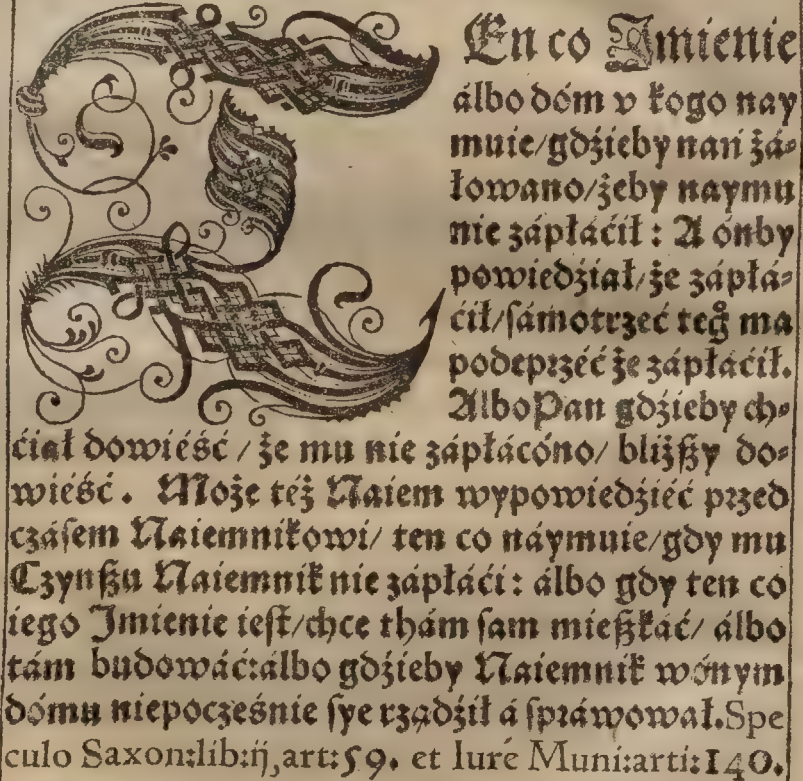 TEn co Imienie
álbo dóm v kogo nay
muie/gdźieby nań żá⸗
łowano/żeby naymu
nie zápłáćił: A ónby
powiedźiał/że zápłá⸗
ćił/sámotrzeć teg̊ ma
podeprzéć że zápłáćił.
Albo Pan gdźieby ch⸗
ćiał dowiéść / że mu nie zápłácóno/ bliższy do⸗
wiéść. Może téż Naiem wypowiedźiéć przed
czásem Naiemnikowi/ ten co náymuie/gdy mu
Czynszu Naiemnik nie zápłáći: álbo gdy ten co
iego Imienie iest/chce thám sam mieszkáć/ álbo
tám budowáć:álbo gdźieby Naiemnik w ónym
dómu niepocześnie sye rządźił á spráwował.Spe
culo Saxon:lib:ij,art:59. et Iure Muni:arti:140.